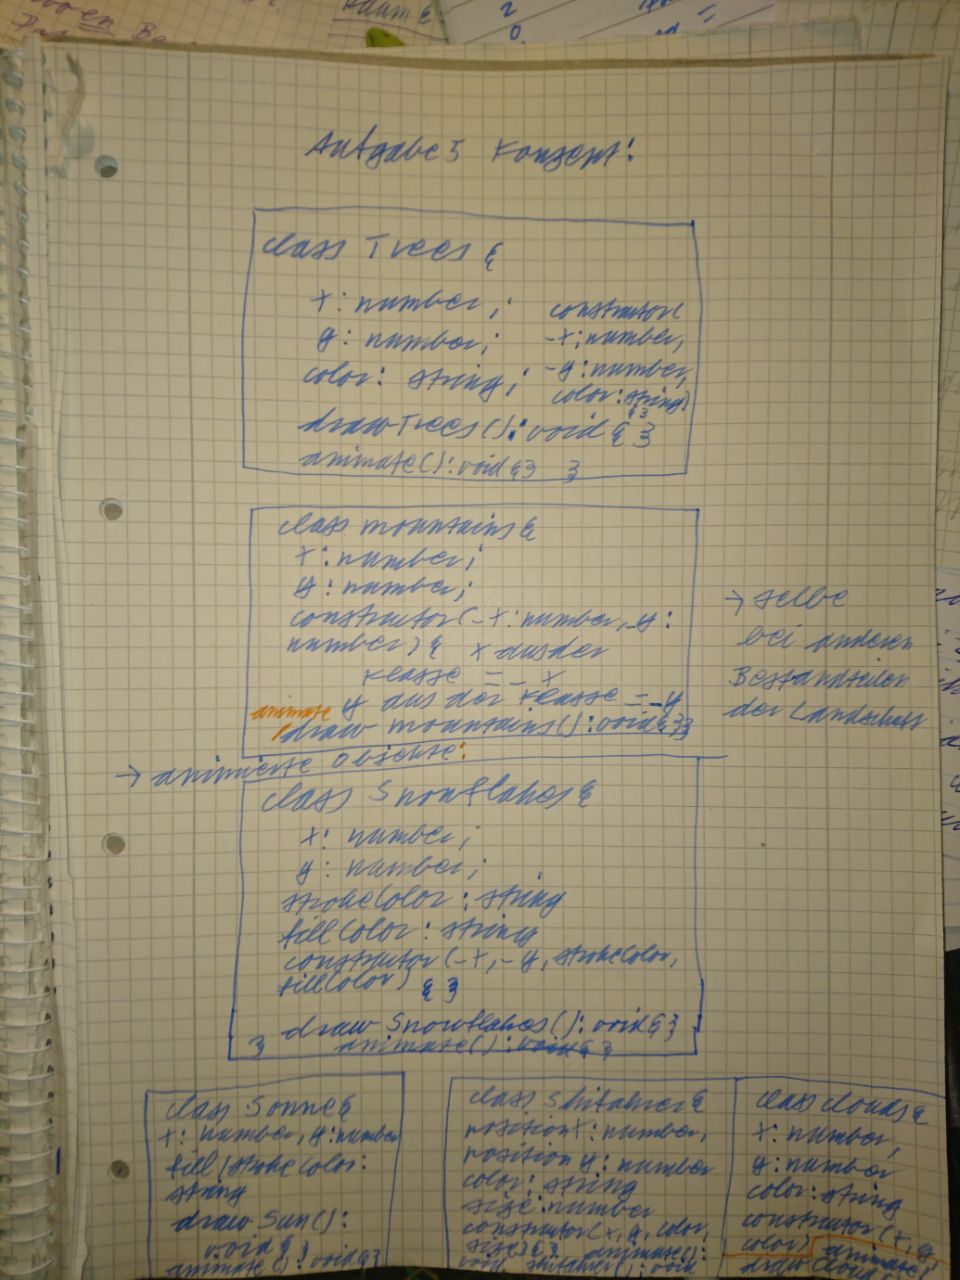 Aufgabe 5 Konzept:
class Trees {
x: number;
y: number;
color: string;
constructor(
-x: number,
-y: number,
color: string)
{}
drawTrees(): void {}
animate(): void {} }
class mountains {
x: number;
y: number;
constructor(-x: number, -y:
number) { x aus der
Klasse = -x
y aus der Klasse = -y
animate
draw mountains(): void {}}
→ selbe
bei anderen
Bestandteilen
der Landschaft
→ animierte Objekte:
class Snowflakes {
x: number;
y: number;
strokeColor: string
fillColor: string
constructor(-x, -y, strokeColor,
fillColor) {}
draw Snowflakes(): void {}
} animate(): void {}
class Sonne {
x: number, y: number
fill/strokeColor:
string
draw Sun():
void {}
animate(): void {}
class Skifahrer {
position x: number,
position y: number
color: string
size: number
constructor(x, y, color,
size) {} animate():
void skifahrer(): void
class clouds {
x: number,
y: number
color: string
constructor(x, y
color) animate
draw